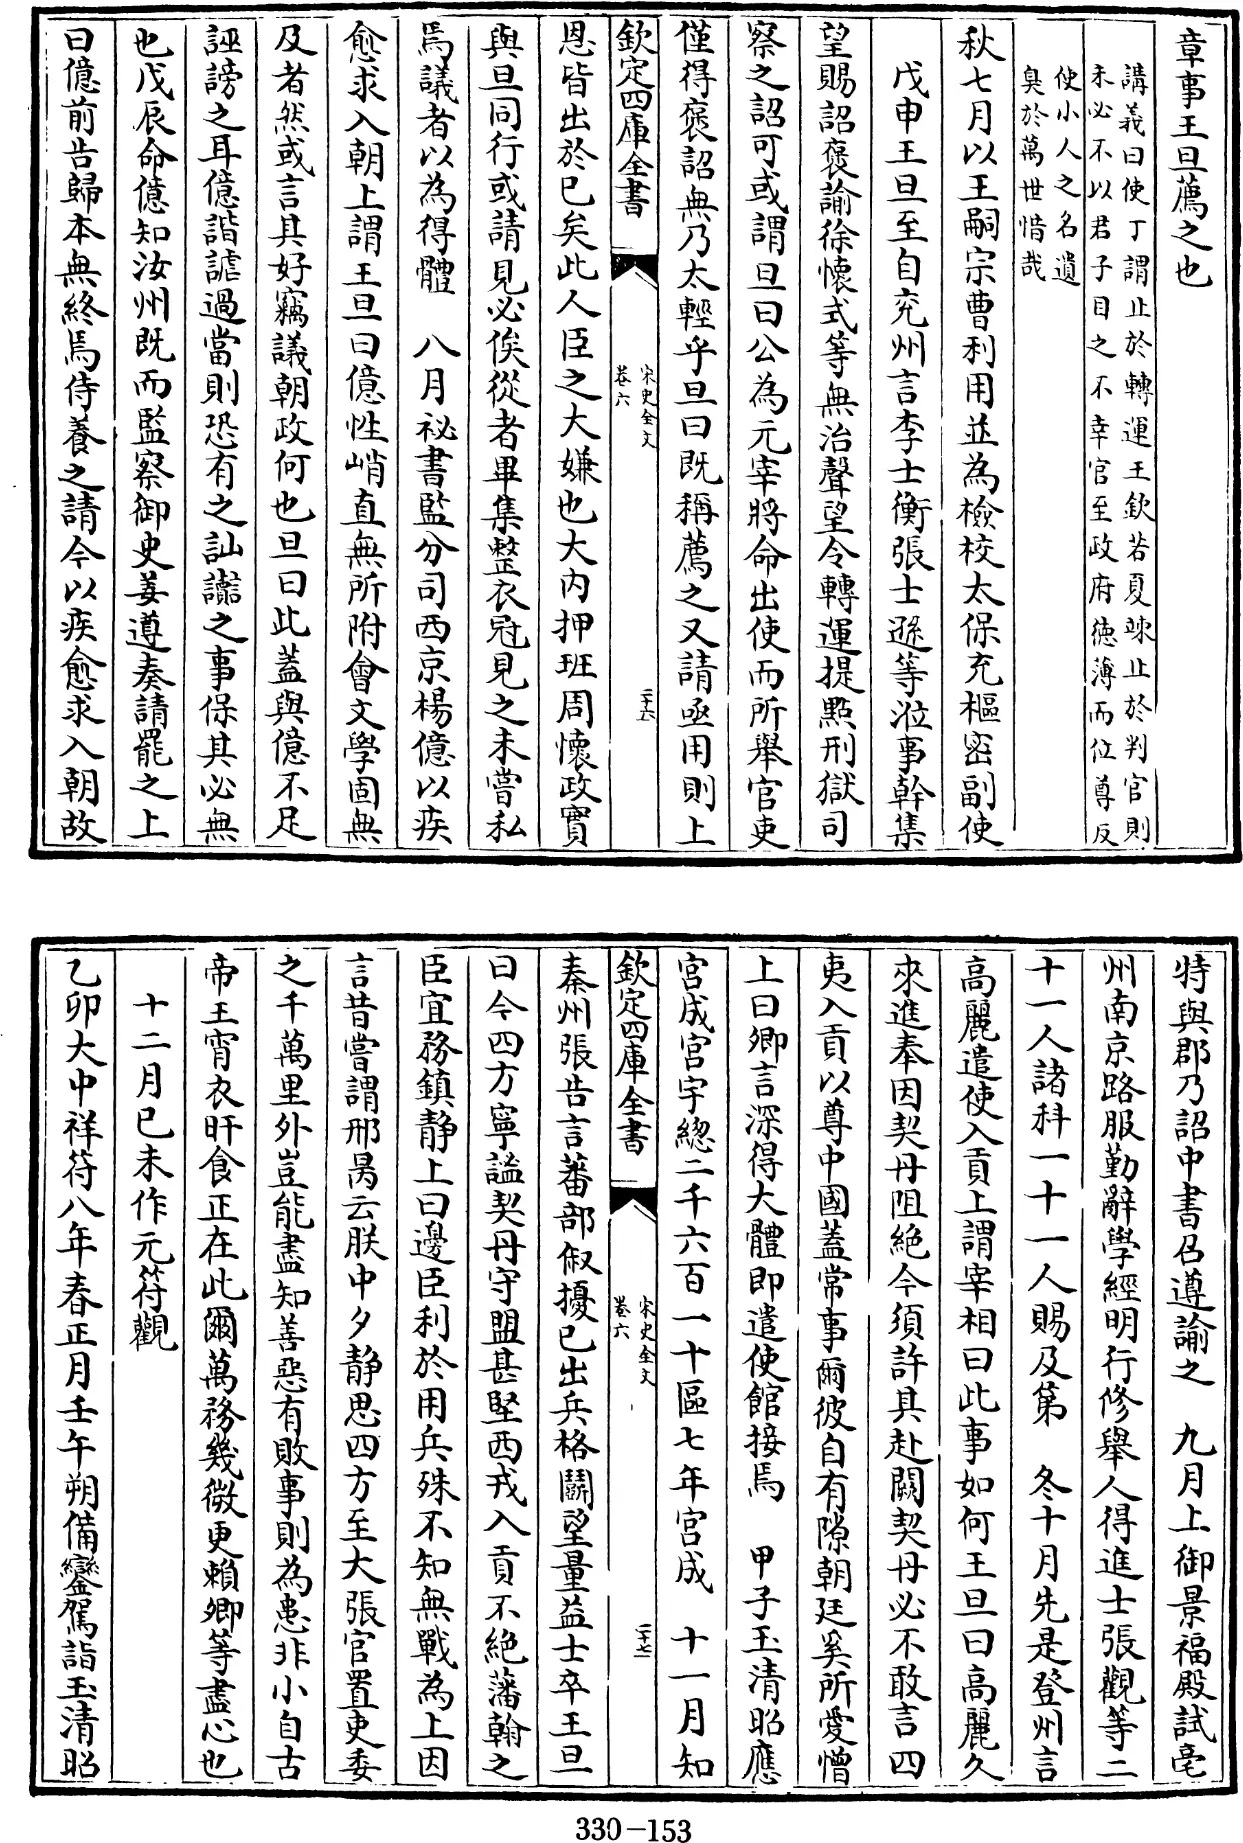 章事王旦薦之也
講義曰使丁謂止於轉運王欽若夏竦止於判官則
未必不以君子目之不幸官至政府徳薄而位尊反
使小人之名遺
臭於萬世惜哉
秋七月以王嗣宗曹利用並為檢校太保充樞密副使
戊申王旦至自兖州言李士衡張士遜等涖事幹集
望賜詔褒諭徐懷式等無治聲望令轉運提點刑獄司
察之詔可或謂旦曰公為元宰將命出使而所舉官吏
僅得褒詔無乃太輕乎旦曰既稱薦之又請亟用則上
欽定四庫全書
宋史全文
卷六
二十六
恩皆出於已矣此人臣之大嫌也大内押班周懷政實
與旦同行或請見必俟從者畢集整衣冠見之未嘗私
焉議者以為得體　八月祕書監分司西京楊億以疾
愈求入朝上謂王旦曰億性峭直無所附會文學固無
及者然或言其好竊議朝政何也旦曰此蓋與億不足
誣謗之耳億諧謔過當則恐有之訕讟之事保其必無
也戊辰命億知汝州既而監察御史姜遵奏請罷之上
曰億前告歸本無終焉侍養之請今以疾愈求入朝故
特與郡乃詔中書召遵諭之　九月上御景福殿試亳
州南京路服勤辭學經明行修舉人得進士張觀等二
十一人諸科一十一人賜及第　冬十月先是登州言
高麗遣使入貢上謂宰相曰此事如何王旦曰高麗久
來進奉因契丹阻絶今須許其赴闕契丹必不敢言四
夷入貢以尊中國蓋常事爾彼自有隙朝廷奚所愛憎
上曰卿言深得大體即遣使館接焉　甲子玉清昭應
宫成宫宇總二千六百一十區七年宫成　十一月知
欽定四庫全書
宋史全文
卷六
二十七
秦州張告言蕃部俶擾已出兵格鬭望量益士卒王旦
曰今四方寧謐契丹守盟甚堅西戎入貢不絶藩翰之
臣宜務鎮静上曰邊臣利於用兵殊不知無戰為上因
言昔嘗謂邢昺云朕中夕静思四方至大張官置吏委
之千萬里外豈能盡知善惡有敗事則為患非小自古
帝王宵衣旰食正在此爾萬務幾微更賴卿等盡心也
十二月已未作元符觀
乙卯大中祥符八年春正月壬午朔備鑾駕詣玉清昭
330-153